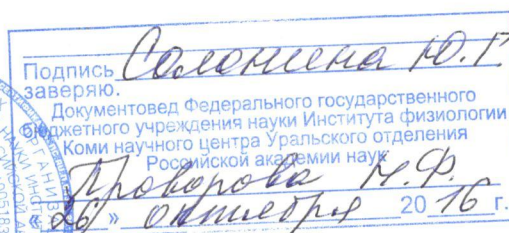 Подпись Солонина Ю.Г.
заверяю.
Документовед Федерального государственного
бюджетного учреждения науки Института физиологии
Коми научного центра Уральского отделения
Российской академии наук
Проворова Н.Ф.
«26» октября 2016 г.